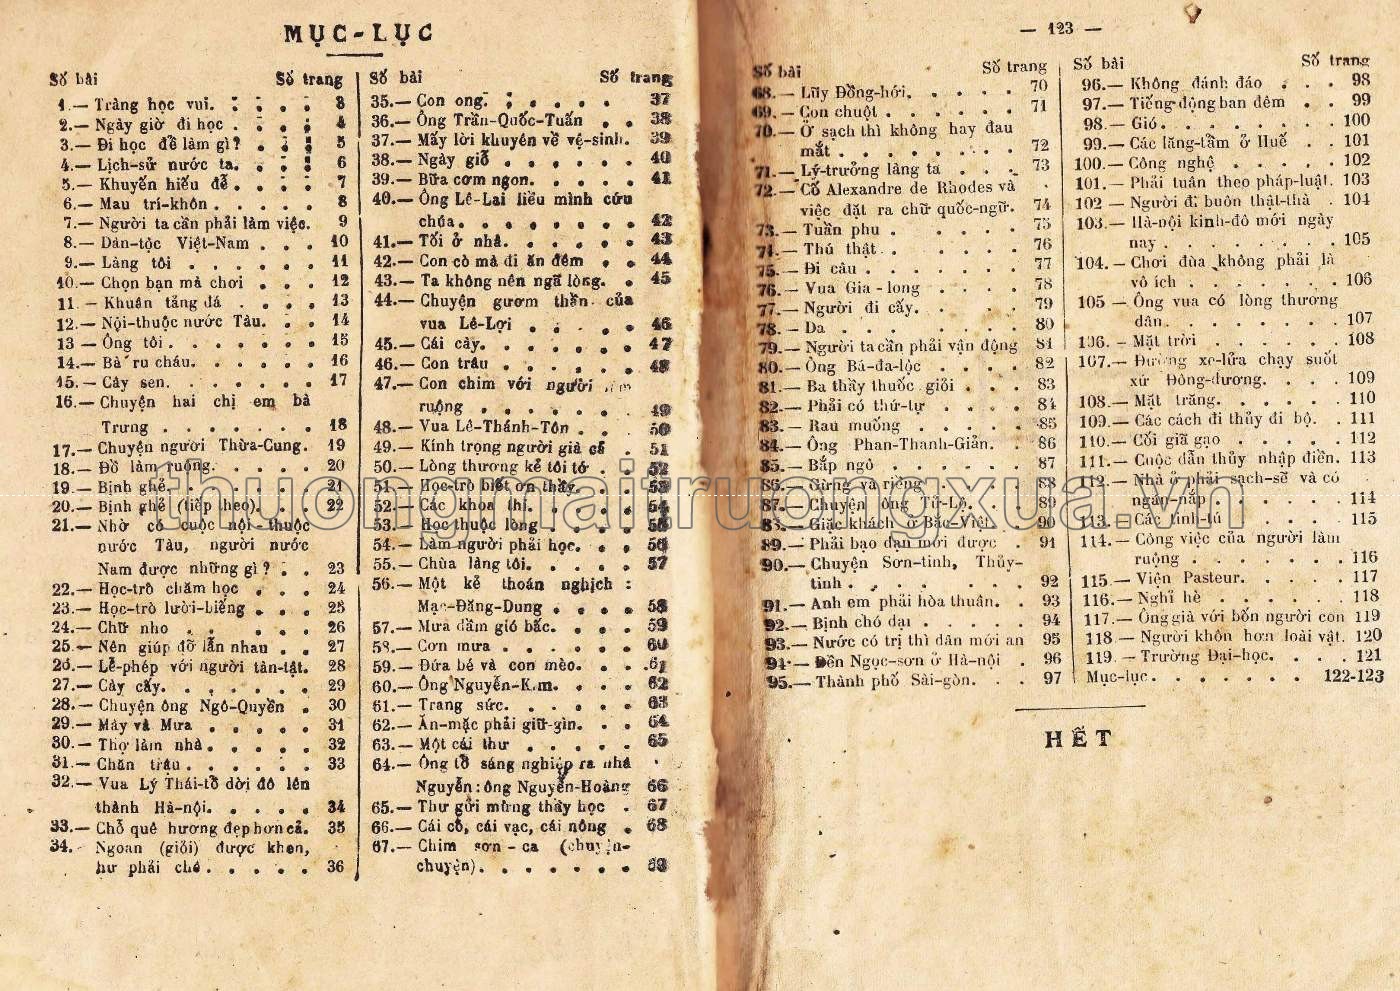 MỤC-LỤC
Số bài Số trang
1.— Tràng học vui. . . . . 3
2.— Ngày giờ đi học . . . . 4
3.— Đi học để làm gì? . . . 5
4.— Lịch-sử nước ta. . . . 6
5.— Khuyến hiếu đễ. . . . . 7
6.— Mau trí-khôn . . . . . 8
7.— Người ta cần phải làm việc. 9
8.— Dân-tộc Việt-Nam . . . 10
9.— Làng tôi . . . . . . 11
10.— Chọn bạn mà chơi . . . 12
11.— Khuân tảng đá . . . . 13
12.— Nội-thuộc nước Tàu. . . 14
13 — Ông tôi . . . . . . 15
14.— Bà ru cháu. . . . . . 16
15.— Cây sen. . . . . . . 17
16.— Chuyện hai chị em bà
Trưng . . . . . . . 18
17.— Chuyện người Thừa-Cung. 19
18.— Đồ làm ruộng. . . . . 20
19.— Bịnh ghẻ. . . . . . . 21
20.— Bịnh ghẻ (tiếp theo). . . 22
21.— Nhờ có cuộc nội-thuộc
nước Tàu, người nước
Nam được những gì? . . 23
22.— Học-trò chăm học . . . 24
23.— Học-trò lười-biếng . . . 25
24.— Chữ nho . . . . . . 26
25.— Nên giúp đỡ lẫn nhau . . 27
26.— Lễ-phép với người tàn-tật. 28
27.— Cày cấy. . . . . . . 29
28.— Chuyện ông Ngô-Quyền . 30
29.— Mây và Mưa . . . . . 31
30.— Thợ làm nhà. . . . . . 32
31.— Chăn trâu . . . . . . 33
32.— Vua Lý Thái-tổ dời đô lên
thành Hà-nội. . . . . 34
33.— Chỗ quê hương đẹp hơn cả. 35
34.— Ngoan (giỏi) được khen,
hư phải chê. . . . . . 36
Số bài Số trang
35.— Con ong. . . . . . . 37
36.— Ông Trần-Quốc-Tuấn . . 38
37.— Mấy lời khuyên về vệ-sinh. 39
38.— Ngày giỗ . . . . . . 40
39.— Bữa cơm ngon. . . . . 41
40.— Ông Lê-Lai liều mình cứu
chúa. . . . . . . . 42
41.— Tối ở nhà. . . . . . 43
42.— Con cò mà đi ăn đêm . . 44
43.— Ta không nên ngã lòng. . 45
44.— Chuyện gươm thần của
vua Lê-Lợi . . . . . 46
45.— Cái cày. . . . . . . 47
46.— Con trâu . . . . . . 48
47.— Con chim với người làm
ruộng . . . . . . . 49
48.— Vua Lê-Thánh-Tôn . . . 50
49.— Kính trọng người già cả . 51
50.— Lòng thương kẻ tôi tớ . . 52
51.— Học-trò biết ơn thầy. . . 53
52.— Các khoa thi. . . . . 54
53.— Học thuộc lòng . . . . 55
54.— Làm người phải học. . . 56
55.— Chùa làng tôi. . . . . 57
56.— Một kẻ thoán nghịch :
Mạc-Đăng-Dung . . . . 58
57.— Mưa dầm gió bấc. . . . 59
58.— Cơn mưa . . . . . . 60
59.— Đứa bé và con mèo. . . 61
60.— Ông Nguyễn-Kim. . . . 62
61.— Trang sức. . . . . . 63
62.— Ăn-mặc phải giữ-gìn. . . 64
63.— Một cái thư . . . . . 65
64.— Ông tổ sáng nghiệp ra nhà
Nguyễn: ông Nguyễn-Hoàng 66
65.— Thư gửi mừng thầy học . 67
66.— Cái cò, cái vạc, cái nông . 68
67.— Chim sơn-ca (chuyện-
chuyện). . . . . . . 69
— 123 —
Số bài Số trang
68.— Lũy Đồng-hới. . . . . 70
69.— Con chuột . . . . . . 71
70.— Ở sạch thì không hay đau
mắt . . . . . . . . 72
71.— Lý-trưởng làng ta . . . 73
72.— Cố Alexandre de Rhodes và
việc đặt ra chữ quốc-ngữ. 74
73.— Tuần phu . . . . . 75
74.— Thú thật . . . . . . 76
75.— Đi câu . . . . . . . 77
76.— Vua Gia-long . . . . 78
77.— Người đi cấy. . . . . 79
78.— Da . . . . . . . 80
79.— Người ta cần phải vận động 81
80.— Ông Bá-đa-lộc . . . . 82
81.— Ba thầy thuốc giỏi . . . 83
82.— Phải có thứ-tự . . . . 84
83.— Rau muống . . . . . 85
84.— Ông Phan-Thanh-Giản. . 86
85.— Bắp ngô . . . . . . 87
86.— Gừng và riềng . . . . 88
87.— Chuyện ông Tử-Lộ. . . 89
88.— Giặc khách ở Bắc-Việt. . 90
89.— Phải bạo dạn mới được . 91
90.— Chuyện Sơn-tinh, Thủy-
tinh . . . . . . . 92
91.— Anh em phải hòa thuận. . 93
92.— Bịnh chó dại . . . . . 94
93.— Nước có trị thì dân mới an 95
94.— Đền Ngọc-sơn ở Hà-nội . 96
95.— Thành phố Sài-gòn. . . 97
Số bài Số trang
96.— Không đánh đáo . . . 98
97.— Tiếng động ban đêm . . 99
98.— Gió. . . . . . . . 100
99.— Các lăng-tẩm ở Huế . . 101
100.— Công nghệ . . . . . 102
101.— Phải tuân theo pháp-luật. 103
102 — Người đi buôn thật-thà . 104
103.— Hà-nội kinh-đô mới ngày
nay . . . . . . . . 105
104.— Chơi đùa không phải là
vô ích . . . . . . . 106
105 — Ông vua có lòng thương
dân. . . . . . . . 107
106. — Mặt trời . . . . . . 108
107.— Đường xe-lửa chạy suốt
xứ Đông-dương. . . . 109
108.— Mặt trăng. . . . . . 110
109.— Các cách đi thủy đi bộ. . 111
110.— Cối giã gạo . . . . . 112
111.— Cuộc dẫn thủy nhập điền. 113
112.— Nhà ở phải sạch-sẽ và có
ngăn-nắp . . . . . . 114
113.— Các tỉnh-lỵ . . . . . 115
114.— Công việc của người làm
ruộng . . . . . . . 116
115 — Viện Pasteur. . . . . 117
116.— Nghỉ hè . . . . . . 118
117.— Ông già với bốn người con 119
118 — Người khôn hơn loài vật. 120
119.— Trường Đại-học. . . . 121
Mục-lục. . . . . . . 122-123
HẾT
thuongmaitruongxua.vn